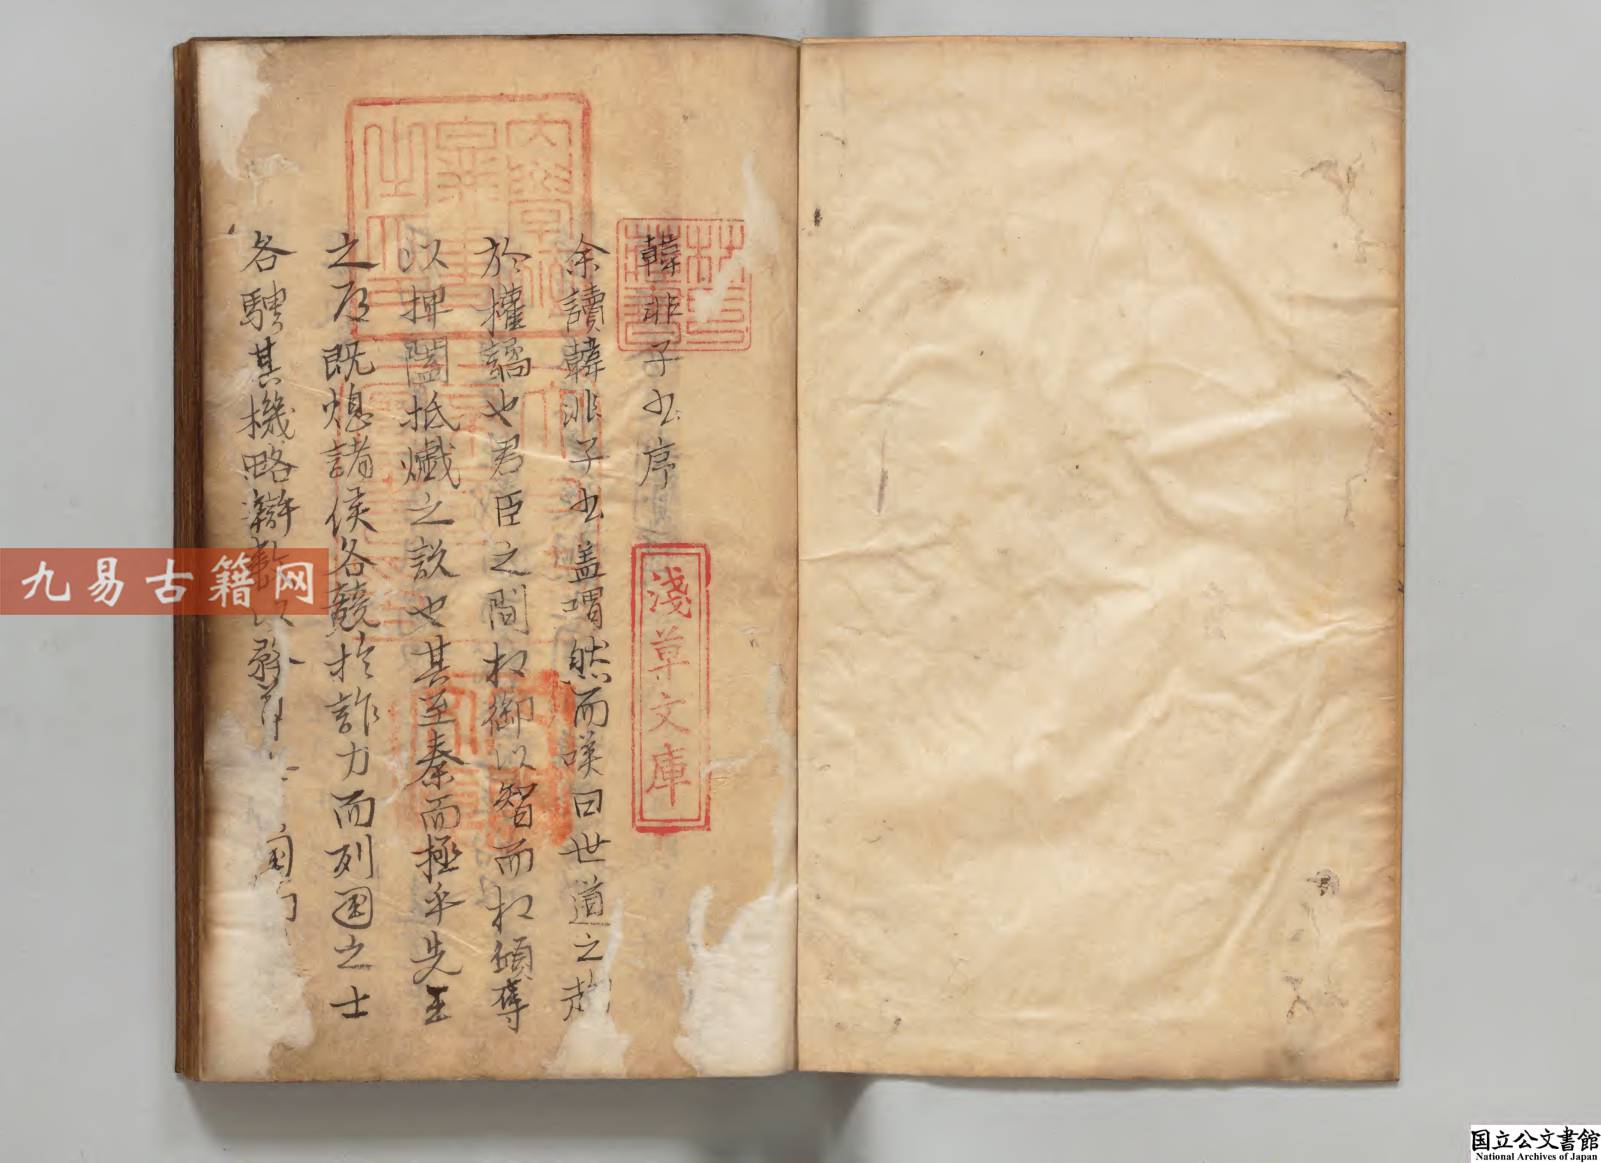 韓非子书序
余讀韓非子书盖喟然而嘆曰世道之趍
於權譎也君臣之間相御以智而相傾奪
以捭闔抵巇之說也其至秦而極乎先王
之石既熄諸侯各競於詐力而列國之士
各騁其機略辯
林氏
藏書
淺草文庫
九易古籍网
国立公文書館
National Archives of Japan